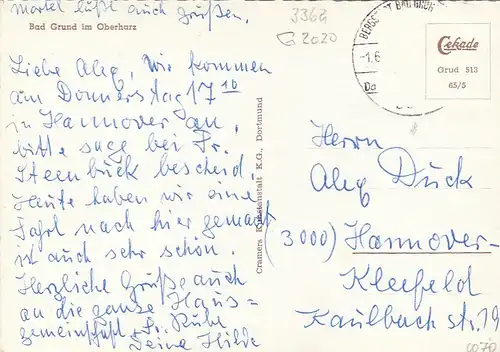 Martel läßt auch Grüßen.
Bad Grund im Oberharz
Liebe Aleq, Wir kommen
am Donnerstag 17 10
in Hannover an,
bitte sage bei Fr.
Steenbuck bescheid.
Heute haben wir eine
Fahrt nach hier gemacht
ist auch sehr schön.
Herzliche Grüße auch
an die ganze Haus=
gemeinschaft + Fr. Rube
Deine Hilde
Cramers Kunstanstalt K.G., Dortmund
3362
G 2020
BERGSTADT BAD GRUND
-1.6
Cekade
Grud 513
65/5
Herrn
Aleq Duck
(3000) Hannover-
Kleefeld
Kaulbach str. 19
0070